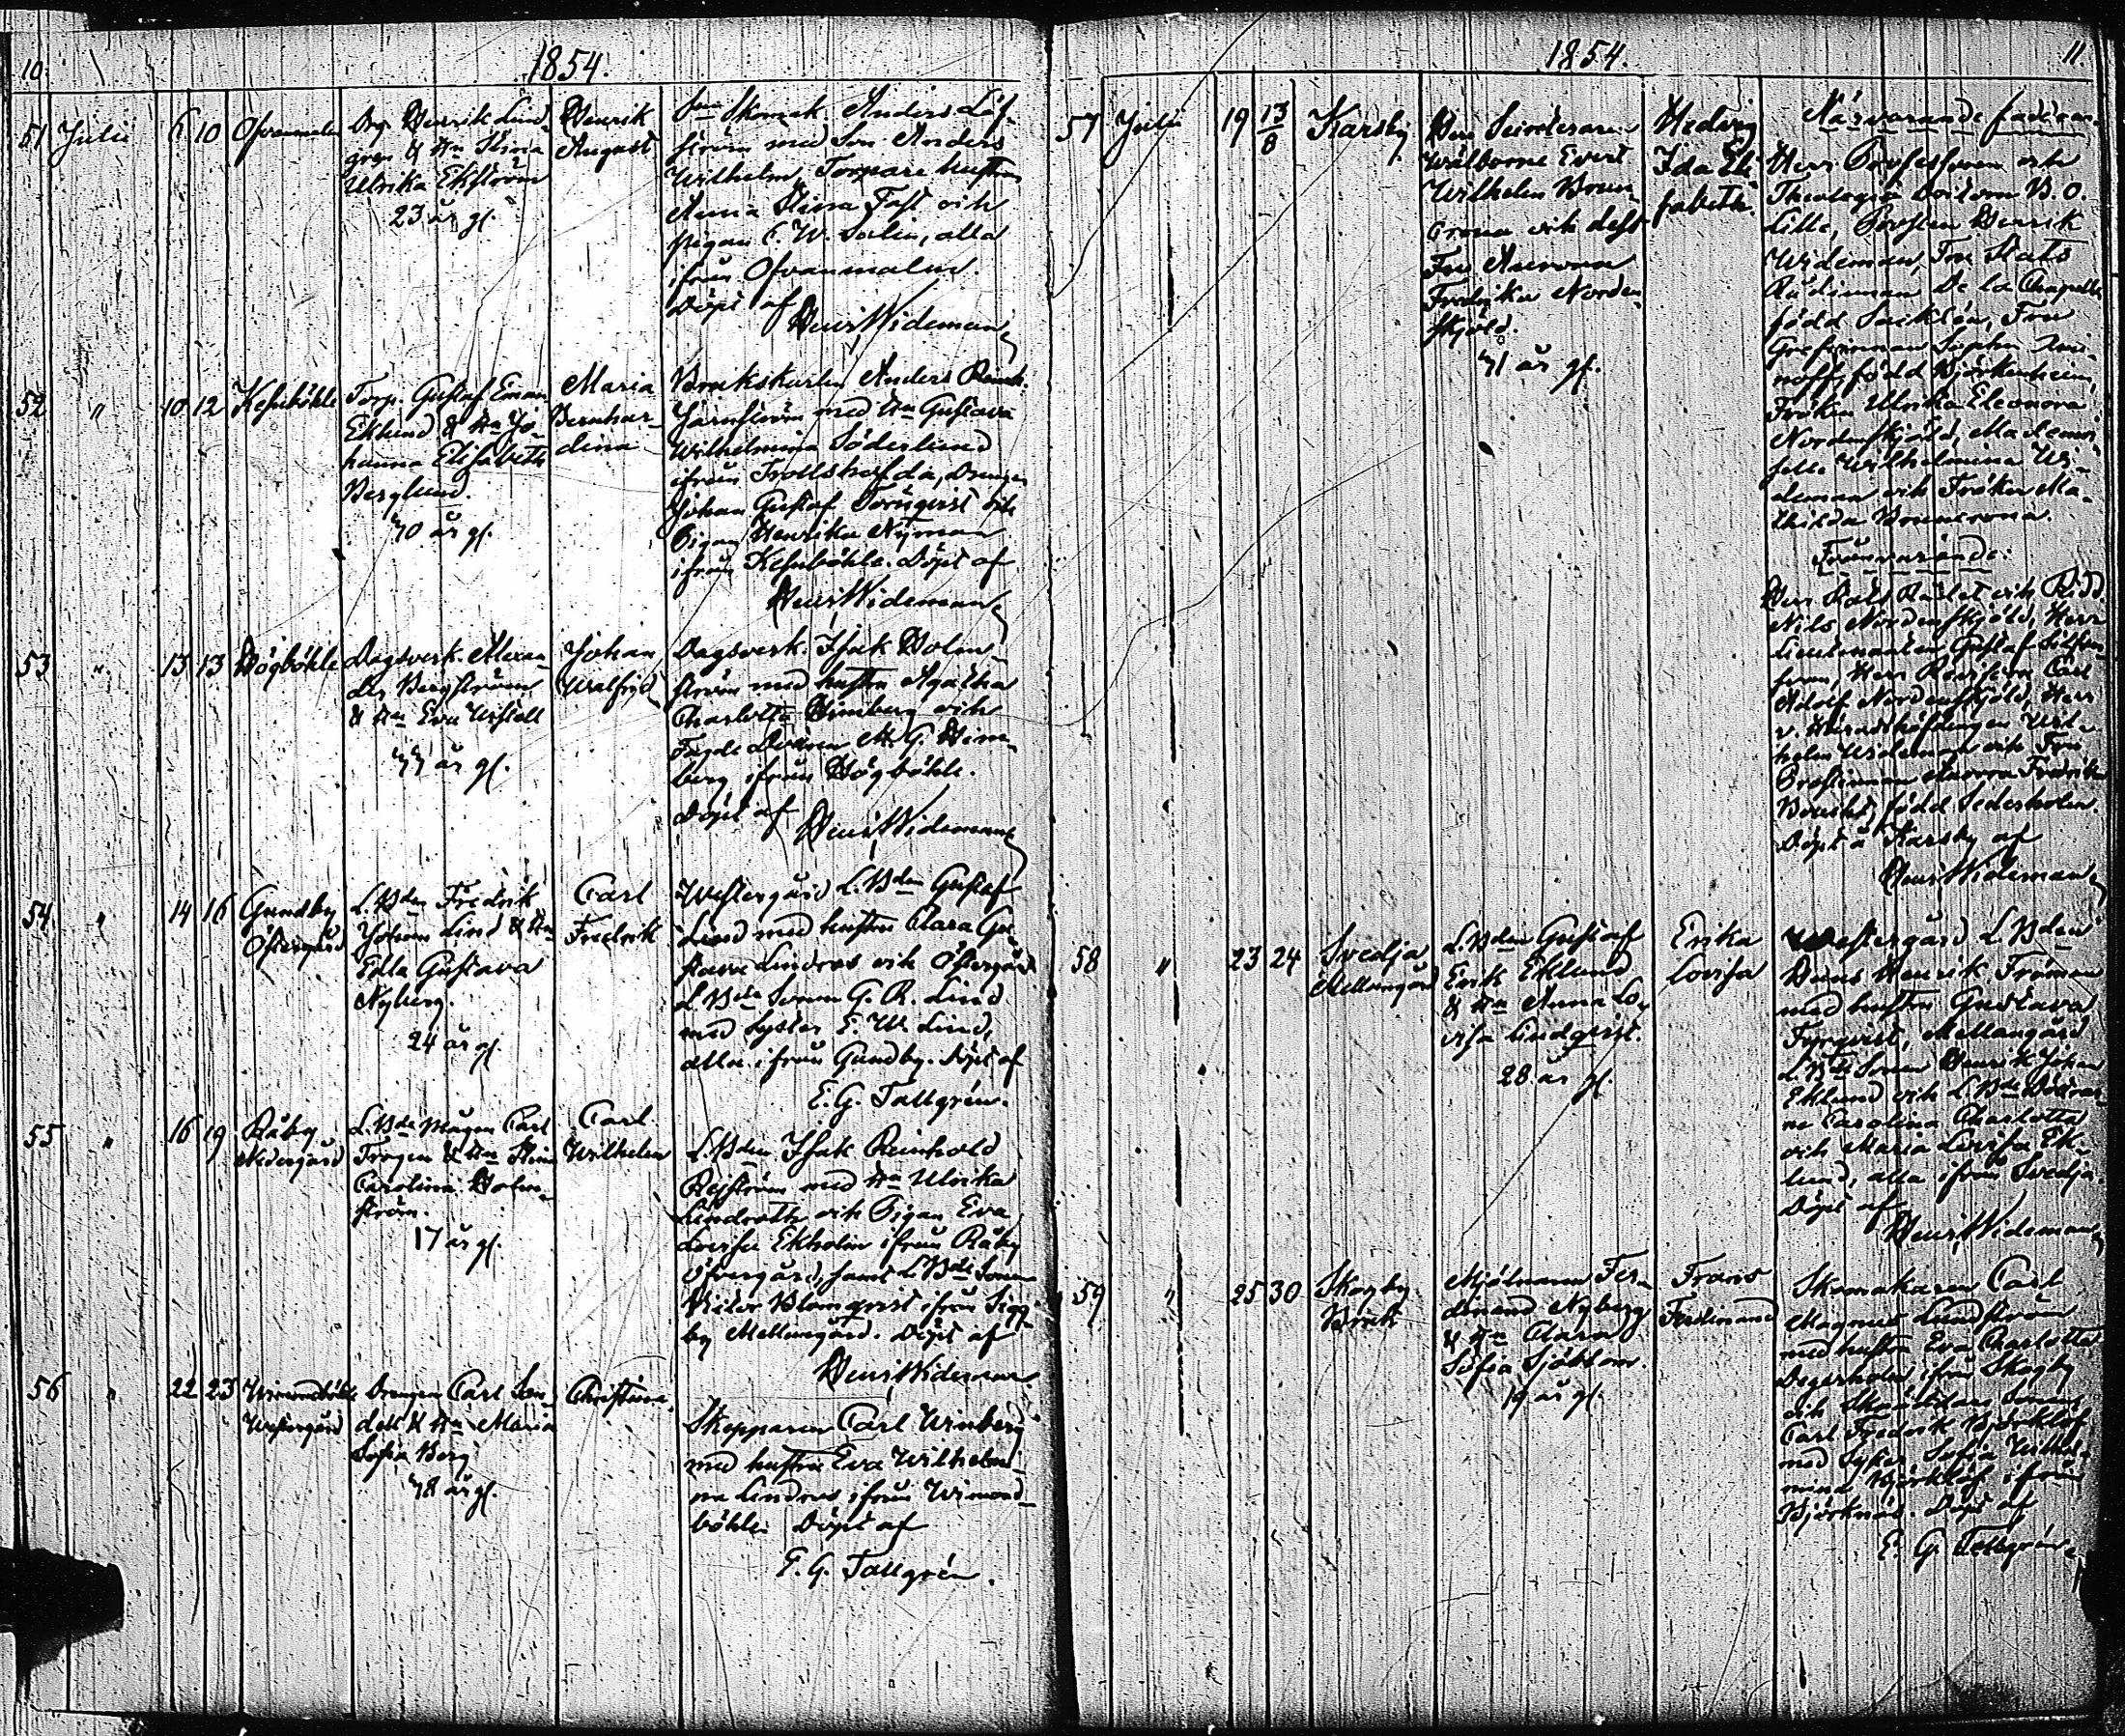 10
1854.
51 Julii 6 10 Ofvanmalm
Henrik Lund-
gren & Hu Stina
Ulrika Ekström
23 år gl.
Henrik
August
Skomak. Anders Löf-
ström med Son Anders
Wilhelm, Torpare hustrun
Anna Stina Fast och
pigan C. W. Salin, alla
ifrån Ofvanmalm.
Döpt af
Henr Wideman
52 " 10 12 Kesuböhle
Torp. Gustaf Eman
Eklund & Hu Jo-
hanna Elisabeth
Berglund.
40 år gl.
Maria
Bernhar-
dina
Brukskarlen Anders Reinh.
Järnström med Hu Gustava
Wilhelmina Söderlund
ifrån Trollshofda, Drengen
Johan Gustaf Törnqvist och
Pigan Henrika Nyman
ifrån Kesuböhle. Döpt af
Henr Wideman
53 " 13 13 Högböhle
Dagsverk. Alexan-
der Bergström
& Hu Eva Ursell
44 år gl.
Johan
Walfrid
Dagsverk. Isak Holm-
ström med hustru Agatha
Charlotta Himberg och
M. G. Him-
berg ifrån Högböhle.
Döpt af
Henr Wideman
54 " 14 16 Gundby
Östergård
L.Bden Fredrik
Johan Lind & Hu
Edla Gustava
Nyberg.
24 år gl.
Carl
Fredrik
Westergård L.Bden Gustaf
Lind med hustru Clara Gu-
stava Lindros och Östergård
L.Bde Sonen G. R. Lind
med Syster E. W. Lind,
alla ifrån Gundby. Döpt af
E. G. Tallgrén.
55 " 16 19 Råby
Nedergård
L.Bde Mågen Carl
Trogen & Hu Stina
Carolina Holm-
ström.
17 år gl.
Carl
Wilhelm
L.Bden Isak Reinhold
Rejström med Hu Ulrika
Lindroth och Pigan Eva
Lovisa Ekholm ifrån Råby
Öfvergård, samt L.Bde Sonen
Victor Blomqvist ifrån Sigg-
by Mellangård. Döpt af
Henr Wideman
56 " 22 23 Wimondböhle
Westergård
Drengen Carl San-
dell & Hu Maria
Sofia Berg
48 år gl.
Christina
Skepparen Carl Winberg
med hustru Eva Wilhelmi-
na Lindros ifrån Wimond-
böhle. Döpt af
E. G. Tallgrén.
1854.
11
57 Julii 19 13/8 Karsby
Herr
Wälborne Evert
Wilhelm Brun-
crona och dess
Fru Aurora
Fredrika Norden-
skjöld.
41 år gl.
Hedvig
Ida Eli-
sabeth.
Närvarande faddrar.
Herr Professoren och
Theologie Doctorn B. O.
Lille, Prosten Henrik
Wideman, Fru Stats
Rådinnan De la Chapelle
född Sacklén, Fru
Grefvinnan Sophie Krui-
noff, född Björkenheim,
Fröken Ulrika Eleonora
Nordenskjöld, Mademoi-
selle Wilhelmina Wi-
deman och Fröken Ma-
thilda Bruncrona.
Frånvarande:
Herr Stats Rådet och Ridd.
Nils Nordenskjöld, Herr
Lieutenanten Gustaf
Herr Carl
Adolf Nordenskjöld, Herr
v. Häradshöfdingen Wil-
helm Wideman och Fru
Prostinnan Aurora Fredrika
född Sederholm.
Döpt å Karsby af
Henr Wideman
58 " 23 24 Svedja
Mellangård
L.Bden Gustaf
Erik Eklund
& Hu Anna Lo-
visa Lindqvist.
28 år gl.
Erika
Lovisa
Westergård L.Bden
Henrik Fröman
med hustru Gustava
Mellangård
L.Bde Sonen Henrik Johan
Eklund och L.Bde Döttrar-
ne Carolina Charlotta
och Maria Lovisa Ek-
lund, alla ifrån Svedja
Döpt af
Henr Wideman
59 " 25 30 Skogby
Bruk
Mjölnaren Fer-
dinand Nyberg
& Hu Clara
Sofia Sjöblom.
19 år gl.
Frans
Ferdinand
Skomakaren Carl
Magnus Lundström
med hustru Eva Charlotta
Degerholm ifrån Skogby
och Sonen
Carl Fredrik Björklöf
med Syster Sofia Wilhel-
mina Björklöf ifrån
Björknäs. Döpt af
E. G. Tallgrén